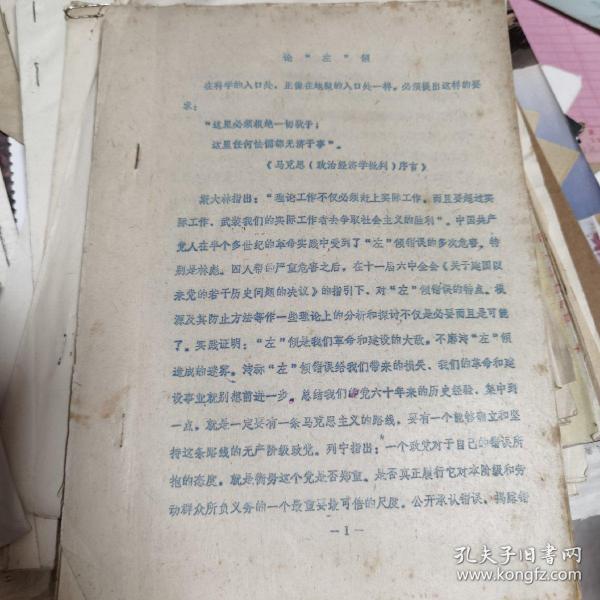 论“左”倾
在科学的入口处，正像在地狱的入口处一样，必须提出这样的要
求：
“这里必须根绝一切犹于；
这里任何怯懦都无济于事”。
《马克思（政治经济学批判）序言》
斯大林指出：“理论工作不仅必须赶上实际工作，而且要超过实
际工作，武装我们的实际工作者去争取社会主义的胜利”。中国共产
党人在半个多世纪的革命实践中受到了“左”倾错误的多次危害，特
别是林彪、四人帮的严重危害之后，在十一届六中全会《关于建国以
来党的若干历史问题的决议》的指引下，对“左”倾错误的特点、根
源及其防止方法等作一些理论上的分析和探讨不仅是必要而且是可能
了。实践证明：“左”倾是我们革命和建设的大敌。不廓清“左”倾
造成的迷雾，清称“左”倾错误给我们带来的损失，我们的革命和建
设事业就别想前进一步。总结我们的党六十年来的历史经验，集中到
一点，就是一定要有一条马克思主义的路线，要有一个能够确立和坚
持这条路线的无产阶级政党。列宁指出：“一个政党对于自己的错误所
抱的态度，就是衡量这个党是否郑重，是否真正履行它对本阶级和劳
动群众所负义务的一个最重要最可信的尺度。公开承认错误，揭露错
—1—
孔夫子旧书网
www.kongfz.com